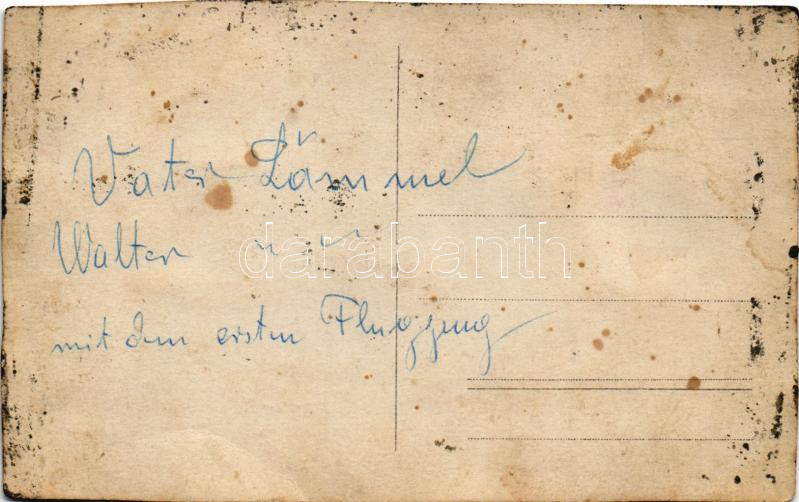 Vater Lämmel
Walter " "
mit dem ersten Flugzeug
darabanth